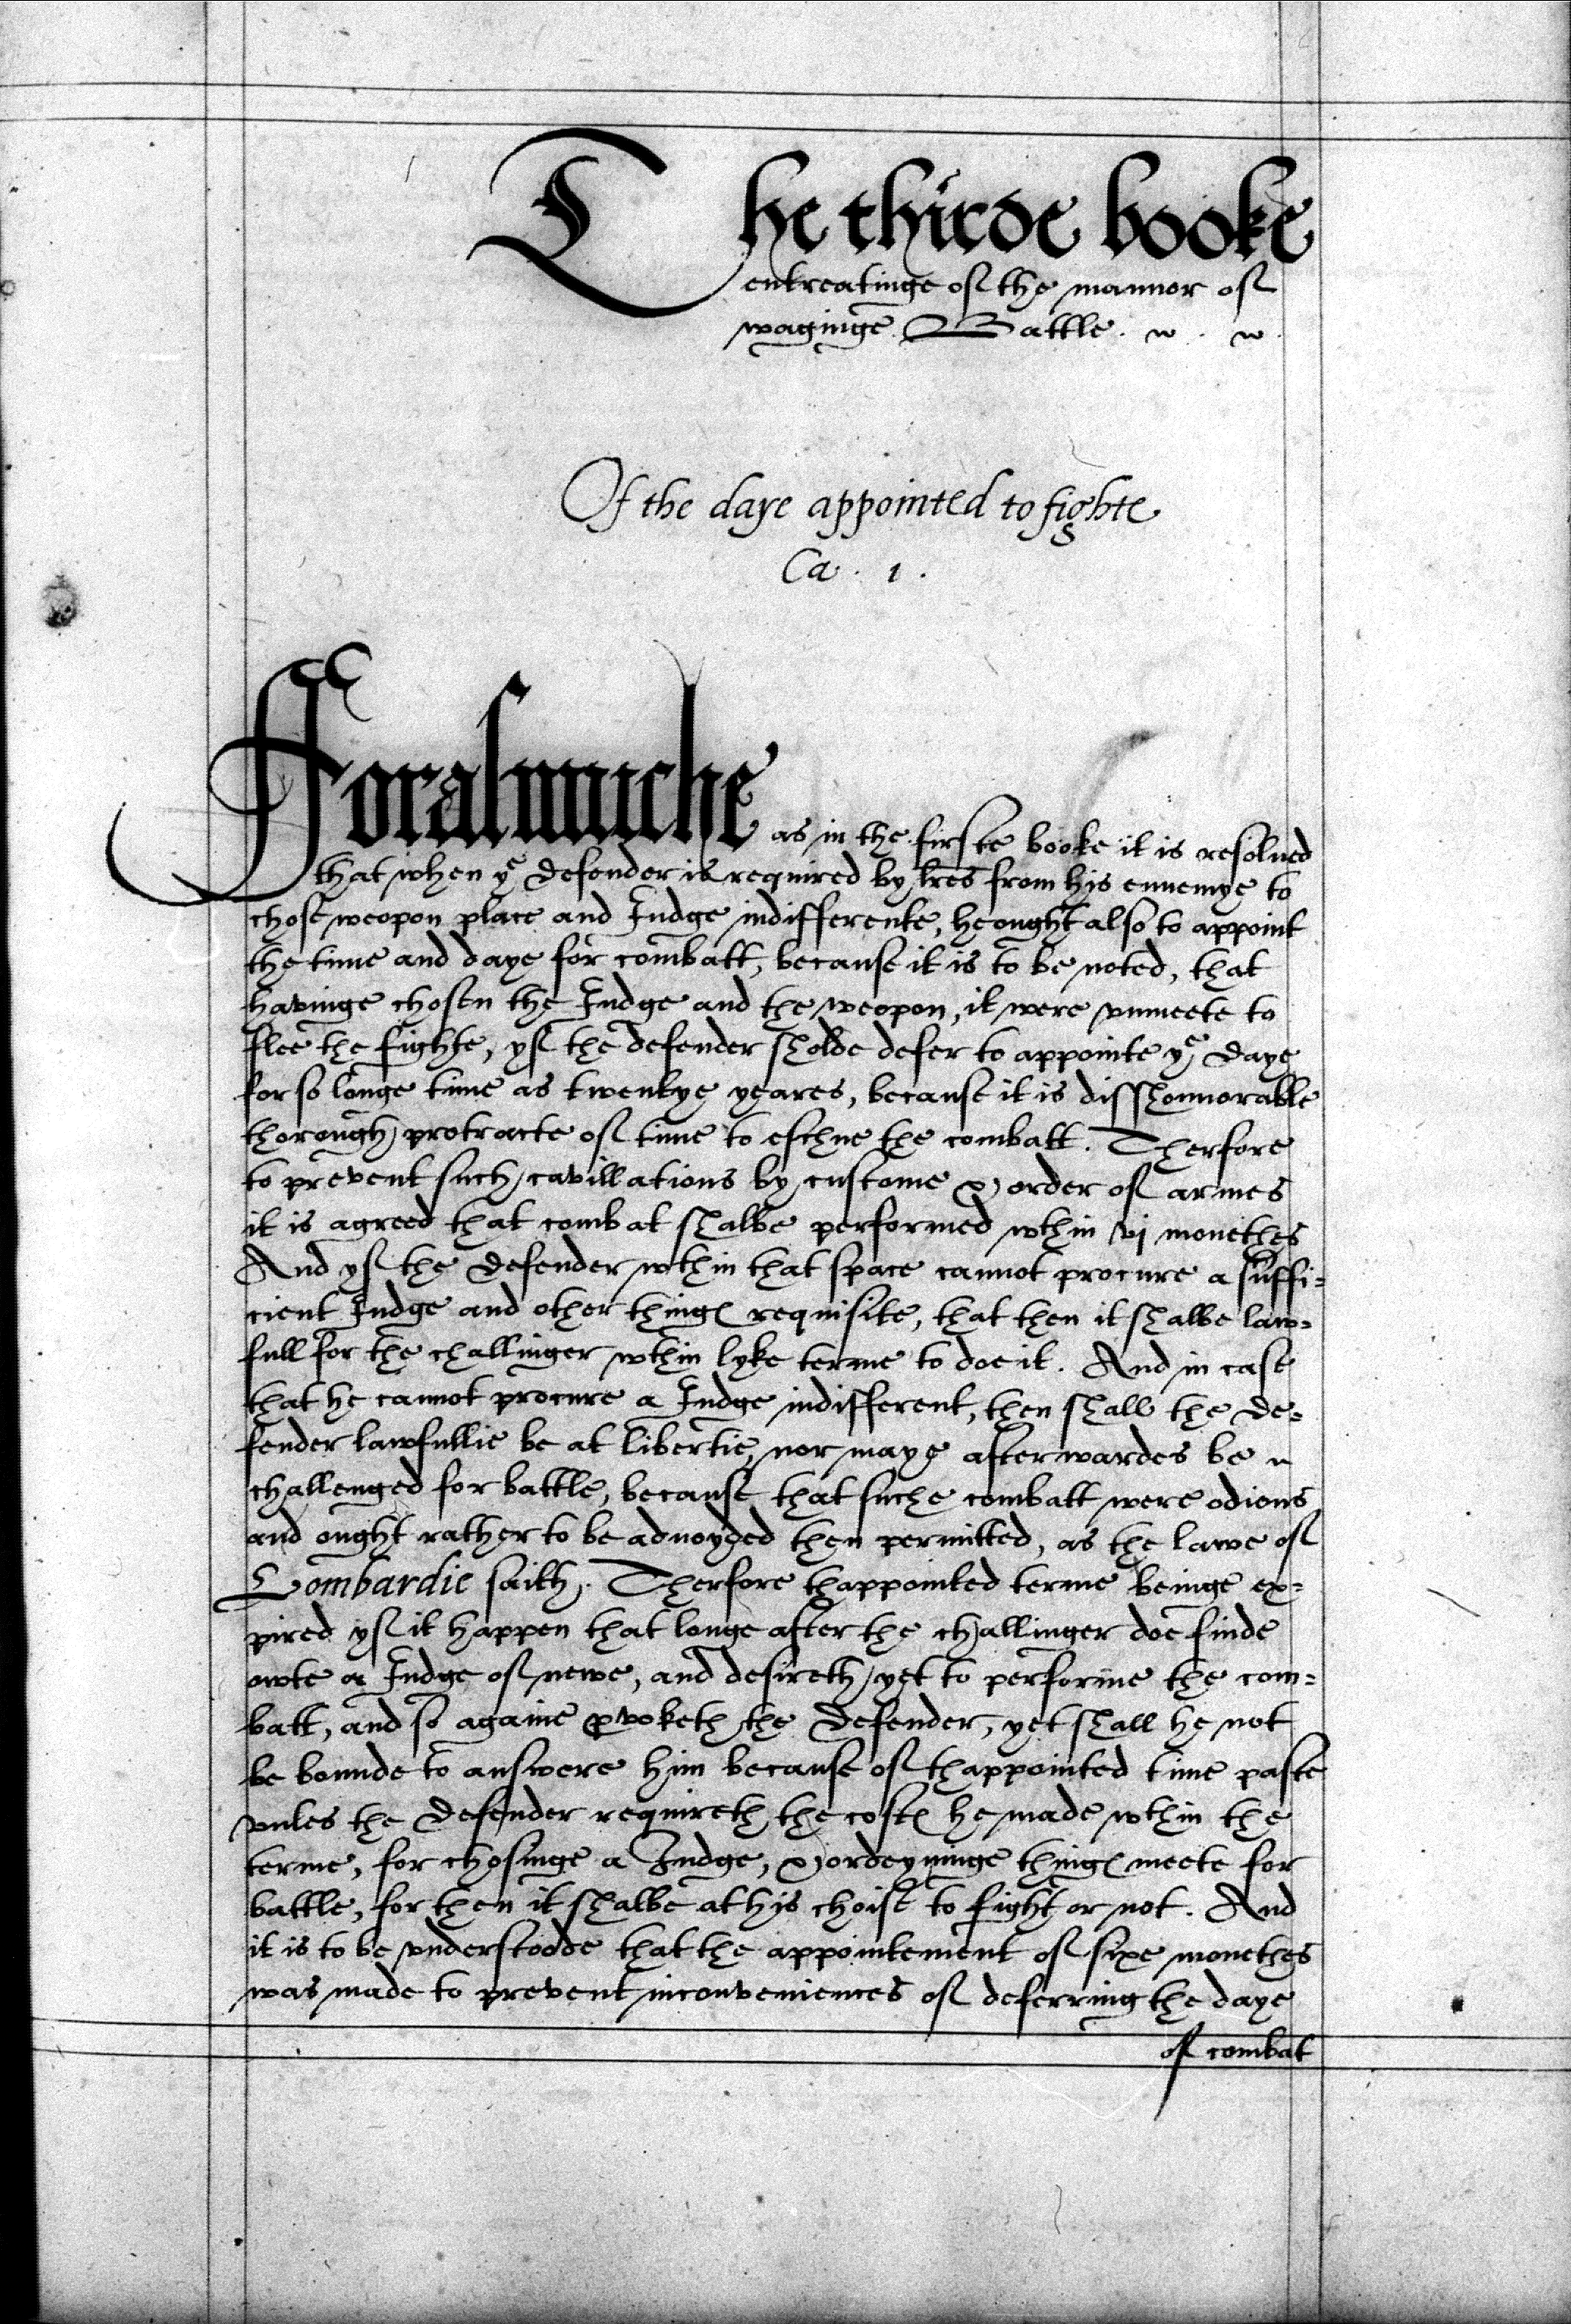 The thirde booke
entreatinge of the mannor of
waginge Battle.
Of the daye appointed to fighte
Ca. 1.
Foralmuche as in the firste booke it is resolued
that when ye defender is required by lres from his ennemye to
chose weopon place and Iudge indifferente, he ought also to appoint
the time and daye for combatt, because it is to be noted, that
havinge chosen the Iudge and the weopon, it were vnmeete to
flee the fighte, yf the defender sholde defer to appointe ye daye
for so longe time as twentye yeares, because it is disshonnorable
thorough protracte of time to eschue the combatt. Therfore
to prevent such cavillations by custome & order of armes
it is agreed that combat shalbe performed wthin vj monethes
And yf the defender wthin that space cannot procure a suffi=
cient Iudge and other things requisite, that then it shalbe law=
full for the challinger wthin lyke terme to doe it. And in case
that he cannot procure a Iudge indifferent, then shall the de=
fender lawfullie be at libertie, nor maye afterwardes be
challenged for battle, because that suche combatt were odious
and ought rather to be aduoyded then permitted, as the lawe of
Lombardie saith. Therfore thappointed terme beinge ex=
pired yf it happen that longe after the challinger doe finde
owte a Iudge of newe, and desireth yet to performe the com=
batt, and so againe ꝓvoketh the defender, yet shall he not
be bounde to answere him because of thappointed time paste
vnles the defender requireth the costs he made wthin the
terme, for chosinge a Iudge, & ordeyninge things meete for
battle, for then it shalbe at his choise to fight or not. And
it is to be vnderstoode that the appointement of sixe monethes
was made to prevent inconveniences of deferring the daye
of combat